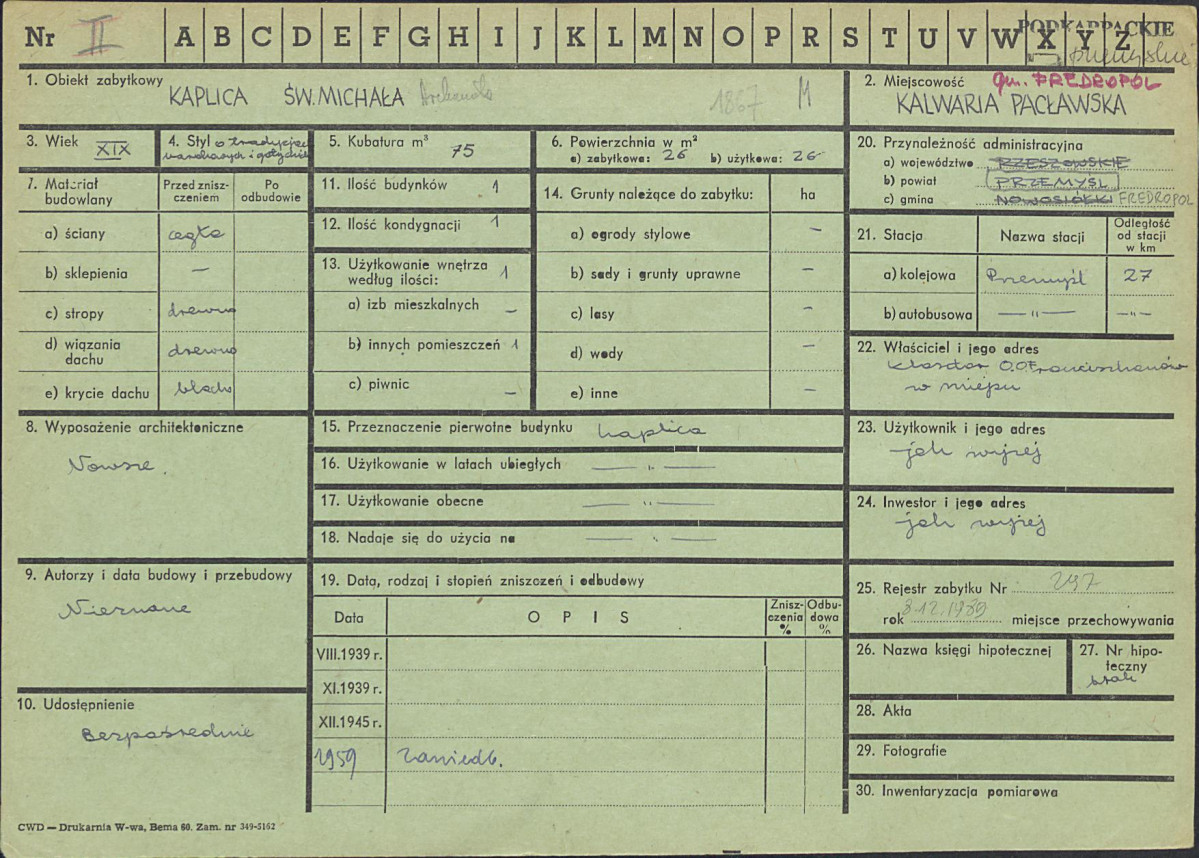 Nr II A B C D E F G H I J K L M N O P R S T U V W X Y Z
PODKARPACKIE
1. Obiekt zabytkowy
KAPLICA ŚW. MICHAŁA Archanioła 1867 M
2. Miejscowość gm. FREDROPOL
KALWARIA PACŁAWSKA
3. Wiek XIX
4. Styl o tradycjach
i gotyckich
5. Kubatura m³ 75
6. Powierzchnia w m²
a) zabytkowa: 26 b) użytkowa: 26
20. Przynależność administracyjna
a) województwo RZESZOWSKIE
b) powiat PRZEMYŚL
c) gmina NOWOSIÓŁKI FREDROPOL
7. Materiał budowlany
Przed zniszczeniem
Po odbudowie
a) ściany cegła
b) sklepienia —
c) stropy drewno
d) wiązania dachu drewno
e) krycie dachu blacha
11. Ilość budynków 1
12. Ilość kondygnacji 1
13. Użytkowanie wnętrza 1
według ilości:
a) izb mieszkalnych —
b) innych pomieszczeń 1
c) piwnic —
14. Grunty należące do zabytku: ha
a) ogrody stylowe —
b) sady i grunty uprawne —
c) lasy —
d) wody —
e) inne —
21. Stacja
Nazwa stacji
Odległość od stacji w km
a) kolejowa Przemyśl 27
b) autobusowa —"— —"—
22. Właściciel i jego adres
Klasztor O.O Franciszkanów
w miejscu
8. Wyposażenie architektoniczne
Nowsze.
15. Przeznaczenie pierwotne budynku kaplica
16. Użytkowanie w latach ubiegłych —"—
17. Użytkowanie obecne —"—
18. Nadaje się do użycia na —"—
23. Użytkownik i jego adres
jak wyżej
24. Inwestor i jego adres
jak wyżej
9. Autorzy i data budowy i przebudowy
Nieznane
10. Udostępnienie
Bezpośrednie
19. Data, rodzaj i stopień zniszczeń i odbudowy
Data OPIS
Zniszczenia %
Odbudowa %
VIII.1939 r.
XI.1939 r.
XII.1945 r.
1959 Zaniedb.
25. Rejestr zabytku Nr 297
rok 8.12.1989 miejsce przechowywania
26. Nazwa księgi hipotecznej
27. Nr hipoteczny
brak
28. Akta
29. Fotografie
30. Inwentaryzacja pomiarowa
CWD — Drukarnia W-wa, Bema 60. Zam. nr 349-5162